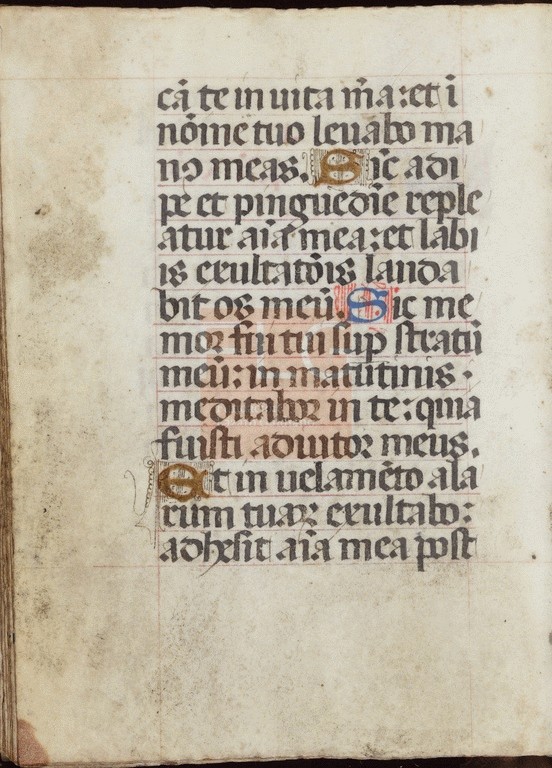 cā te in uita m̄a: et ī
nōme tuo leuabo ma
nꝰ meas. Sic adi
pe et pinguedīe reple
atur aīa mea: et labi
is exultatōis lauda
bit os meū. Sic me
mor fui tui sup stratū
meū: in matutinis ·
meditabor in te: quia
fuisti adiutor meus.
Et in uelamēto ala
rum tuaꝝ exultabo:
adhesit aīa mea post